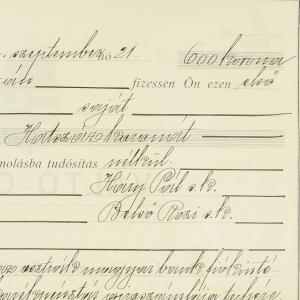 szeptember hó 21. 600 korona
án fizessen Ön ezen első
saját
Hatszáz koronát
molásba tudósítás nélkül.
Háry Pál s.k.
Belső Rózi s.k.
az osztrák magyar bank fiókintó